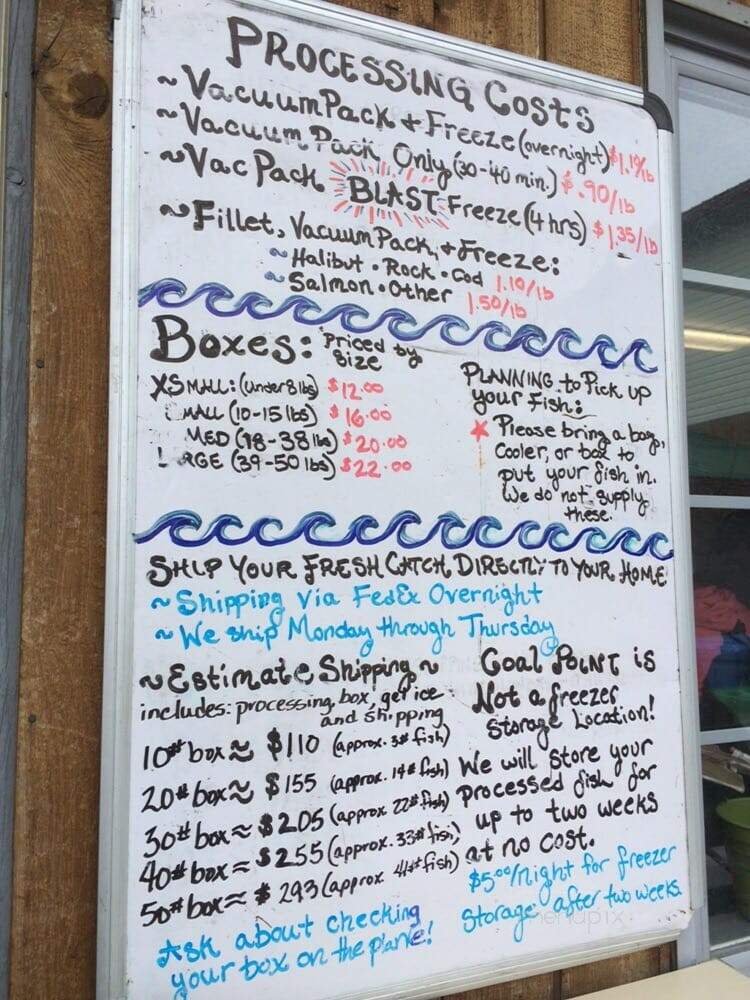 PROCESSING COSTS
~Vacuum Pack + Freeze (overnight) $1.19/lb
~Vacuum Pack Only (30-40 min.) $.90/lb
~Vac Pack BLAST Freeze (4 hrs) $1.35/lb
~Fillet, Vacuum Pack, + Freeze:
~Halibut • Rock • Cod 1.10/lb
~Salmon • Other 1.50/lb
Boxes: Priced by
Size
XSMALL: (under 8 lbs) $12.00
MALL (10-15 lbs) $16.00
MED (18-38 lbs) $20.00
L RGE (39-50 lbs) $22.00
PLANNING to Pick up
your Fish:
* Please bring a bag,
Cooler, or box to
put your fish in.
We do not supply
these.
SHIP YOUR FRESH CATCH DIRECTLY TO YOUR HOME
~Shipping via FedEx Overnight
~We ship Monday through Thursday
~Estimate Shipping~
includes: processing, box, gel ice
and shipping
10# box ≈ $110 (approx. 5# fish)
20# box ≈ $155 (approx. 14# fish)
30# box ≈ $205 (approx 22# fish)
40# box ≈ $255 (approx. 33# fish)
50# box ≈ $293 (approx 44# fish)
Ask about checking
your box on the plane!
Coal Point is
Not a freezer
Storage Location!
We will store your
processed fish for
up to two weeks
at no cost.
$5.00/night for freezer
Storage after two weeks.